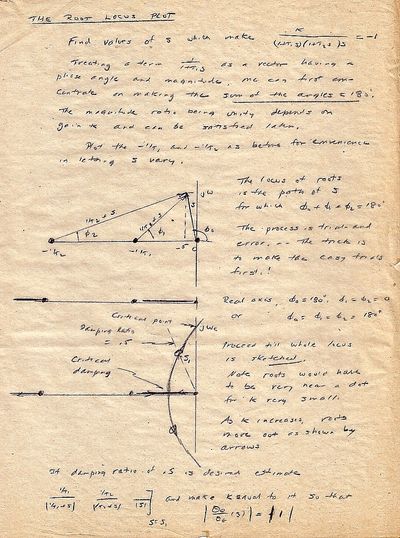 THE ROOT LOCUS PLOT
Find values of s which make K / (1+T₁s)(1+T₂s)s = -1
Treating a term 1/1+T₁s as a vector having a
phase angle and magnitude. We can first con-
centrate on making the sum of the angles = 180°.
The magnitude ratio being unity depends on
gain K and can be satisfied later.
Plot the -1/T₁ and -1/T₂ as before for convenience
in letting s vary.
The locus of roots
is the path of s
for which φ₀ + φ₁ + φ₂ = 180°
The process is trial and
error, -- The trick is
to make the easy trials
first!
1/T₂ + s
1/T₁ + s
s
jω
φ₂
φ₁
φ₀
-1/T₂
-1/T₁
-s
0
Real axis, φ₀ = 180°, φ₁ = φ₂ = 0
or φ₀ = φ₁ = φ₂ = 180°
Critical point
jωc
Damping ratio
= .5
S₁
Critical
damping
Proceed till whole locus
is sketched.
Note roots would have
to be very near a dot
for K very small.
As K increases, roots
move out as shown by
arrows
If damping ratio of .5 is desired estimate
1/T₁ / (1/T₁+s) 1/T₂ / (1/T₂+s) 1/|s| ] s=s₁ and make K equal to it so that
|θo/θe (s)| = |1|